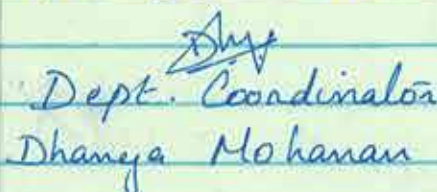 Dept. Coordinator
Dhanya Mohanan